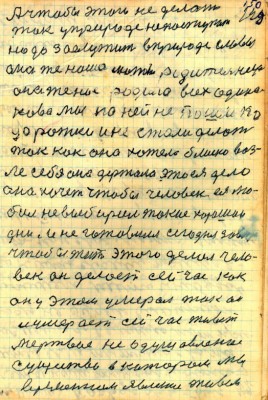 А чтобы этого не делать
так у природе не поступать
надо заслужить в природе славы
она же наша мать родительница
она тебя родила всех одина-
кова мы на ней не пошли по
дорожки и не стали делать
так как она хотела близко воз-
ле себя она держала это ея дело
она хочет чтобы человек ея лю-
бил не выбирал такие хорошии
дни и не готовился сегодня
чтобы этого делал чело-
век он делает сейчас как
он у этом умирал так он
и умирает сейчас живет
мертвое не одушевленое
существо в котором мы
временном явление живем